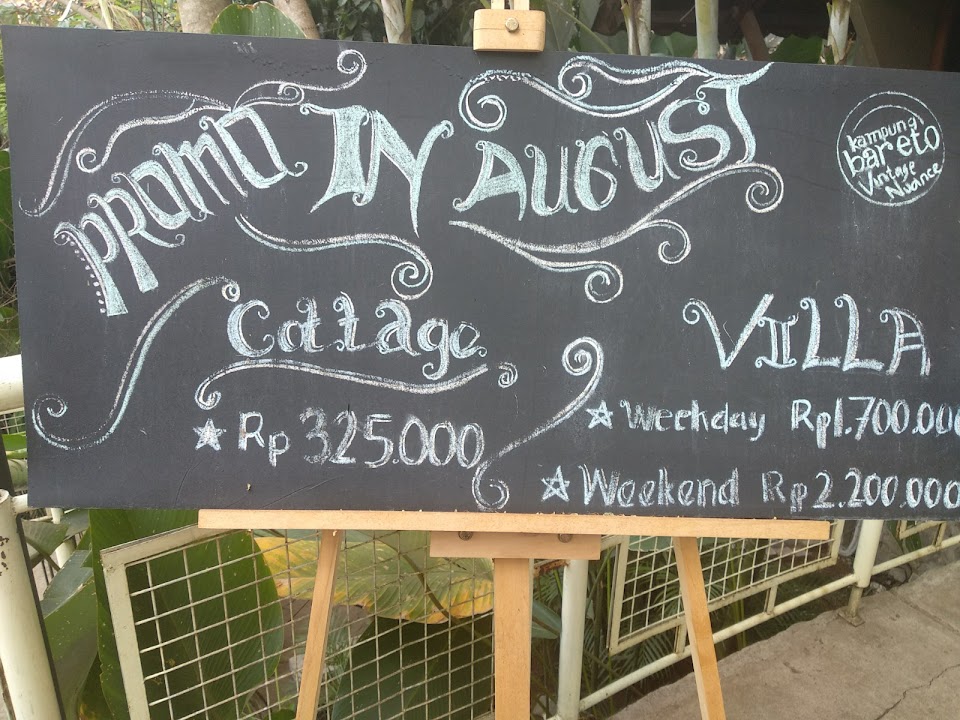 PROMO IN AUGUST
kampung
bareto
Vintage
Nuance
Cottage
Rp 325.000
VILLA
Weekday Rp1.700.000
Weekend Rp2.200.000